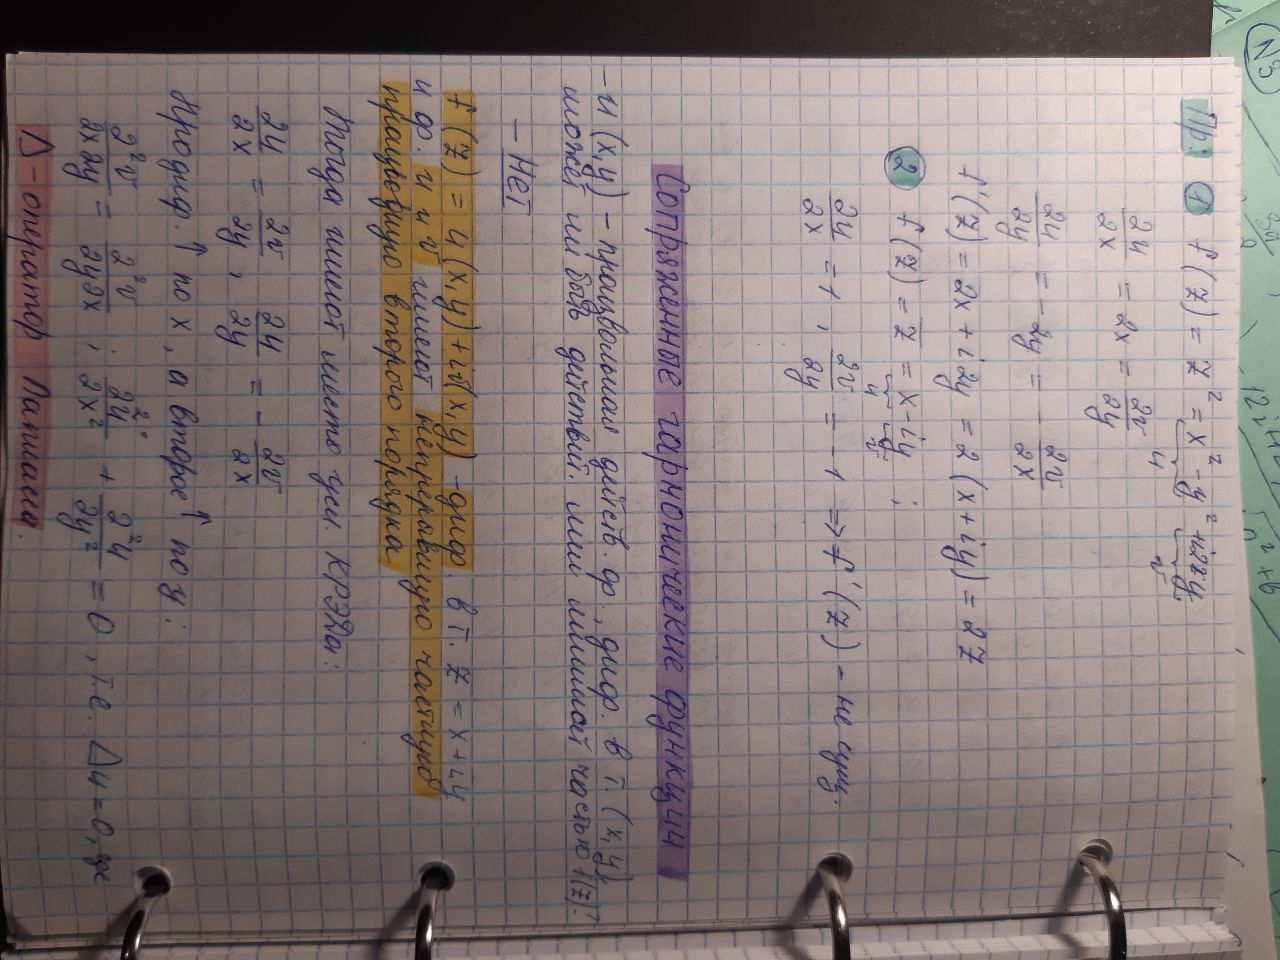 Пр: ① f(z) = z² = x² - y² + i2xy
u v
∂u/∂x = 2x = ∂v/∂y
∂u/∂y = -2y = -∂v/∂x
f'(z) = 2x + i2y = 2(x+iy) = 2z
② f(z) = z̅ = x - iy ;
u v
∂u/∂x = 1, ∂v/∂y = -1 => f'(z) - не сущ.
Сопряженные гармонические функции
- u(x,y) - произвольная действ. ф., диф. в т. (x,y)
может ли быть действит. или мнимой частью f(z)?
- Нет
f(z) = u(x,y) + iv(x,y) - диф. в т. z = x+iy
и ф. u и v имеют непрерывную частную
производную второго порядка
Тогда имеют место усл. КРЭДа:
∂u/∂x = ∂v/∂y, ∂u/∂y = -∂v/∂x
Продиф. ↑ по x, а второе ↑ по y:
∂²v/∂x∂y = ∂²v/∂y∂x ; ∂²u/∂x² + ∂²u/∂y² = 0, т.е. Δu = 0, где
Δ - оператор Лапласа.
N3